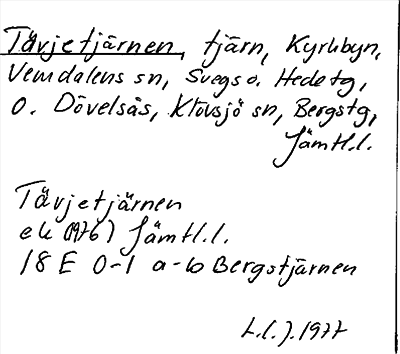 Tävjetjärnen, tjärn, Kyrkbyn,
Vemdalens sn, Svegs o. Hede tg,
o. Dövelsås, Klövsjö sn, Bergs tg,
Jämtl.l.
Tävjetjärnen
ek (1976) Jämtl.l.
18 E 0-1 a-b Bergstjärnen
1977